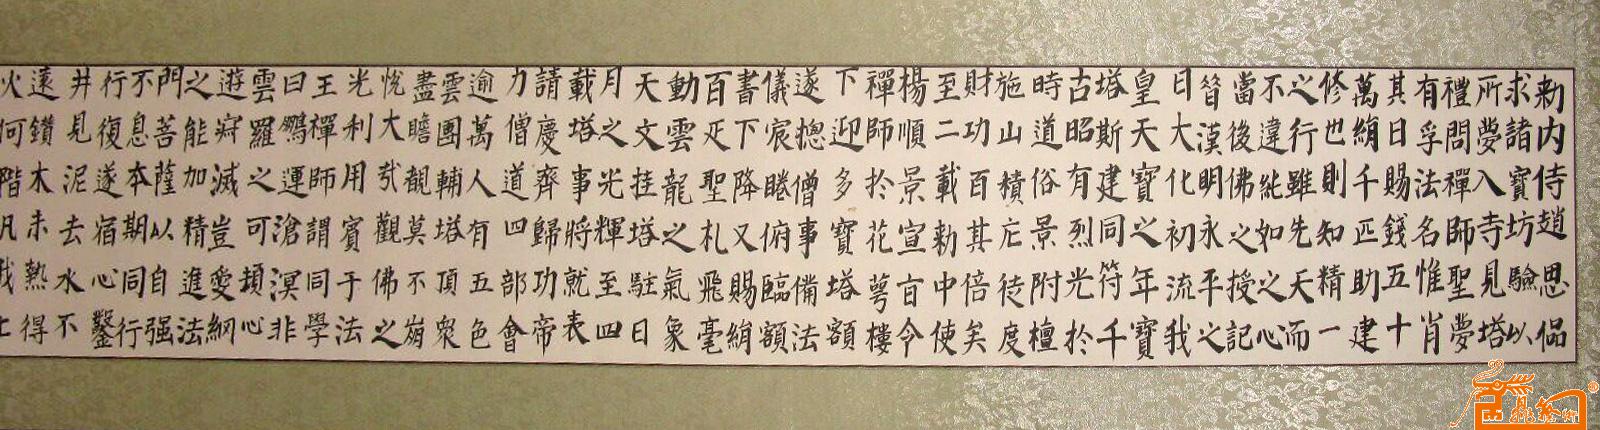 勅内侍趙思偘
求諸寶坊驗以
所夢入寺見塔
禮問禪師聖夢
有孚法名惟肖
其日賜錢五十
萬絹千匹助建
修也則知精一
之行雖先天而
不違能如之心
當後佛之授記
昔漢明永平之
日大化初流我
皇天寶之年寶
塔斯建同符千
古昭有烈光於
時道俗景附檀
施山積庀徒度
財功百其倍矣
至二載勅中使
楊順景宣旨令
禪師於花萼樓
下迎多寶塔額
遂摠僧事備法
儀宸睠俯臨額
書下降又賜絹
百疋聖札飛毫
動雲龍之氣象
天文挂塔駐日
月之光輝至四
載塔事將就表
請慶齊歸功帝
力僧道四部會
逾萬人有五色
雲團輔塔頂衆
盡瞻覩莫不崩
悅大哉觀佛之
光利用賓于法
王禪師謂同學
曰鵬運滄溟非
雲羅之可頓心
遊寂滅豈愛網
之能加精進法
門菩薩以自强
不息本期同行
行復遂宿心鑿
井見泥去水不
遠鑽木未熱得
火何階凡我